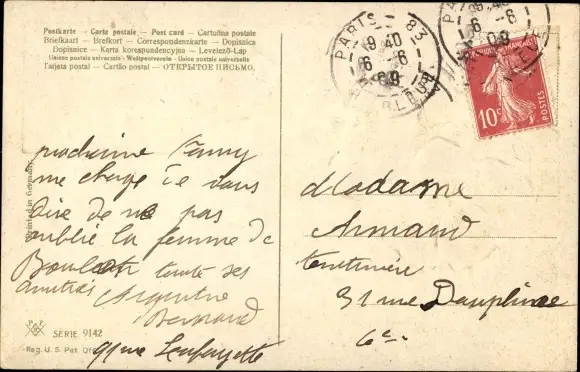 Postkarte — Carte postale — Post card — Cartolina postale
Briefkaart — Brefkort — Correspondenzkarte — Dopisnica
Dopisnice — Karta korespondencyjna — Levelező-Lap
Unione postale universale - Weltpostverein - Union postale universelle
Tarjeta postal — Cartão postal — ОТКРЫТОЕ ПИСЬМО.
PARIS 83
9 40
6 - 6
09
PARIS
9 40
6 - 6
09
RÉPUBLIQUE FRANÇAISE
10c
POSTES
prochaine Fanny
me charge de vous
dire de ne pas
oublier la femme de
toute ses
amitiés
Bernard
91 rue Lafayette
Madame
Armand
teinturière
31 rue Dauphine
Printed in Germany
SERIE 9142
Reg. U. S. Pat. Off.